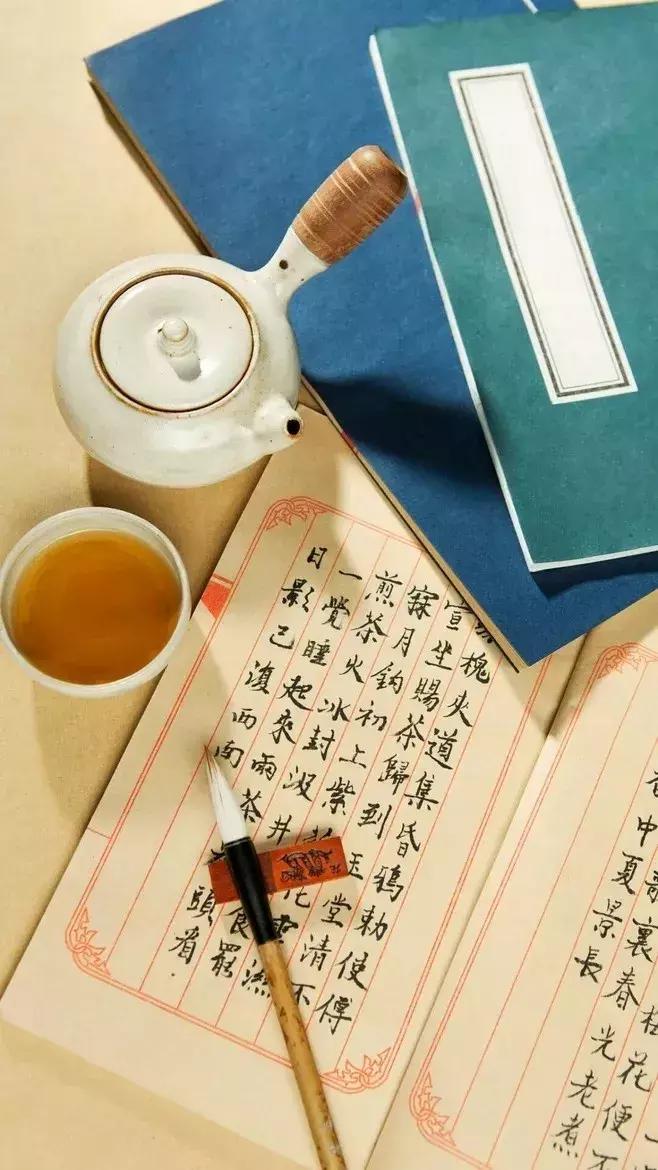 槐夾道集昏鴉勅使傳
宣坐賜茶歸到玉堂清不
寐月鈎初上紫
煎茶火冰封汲井 食罷
一覺睡起來兩茶 頭看
日影已復西南
桂花便不
裏春光老煮
中夏景長